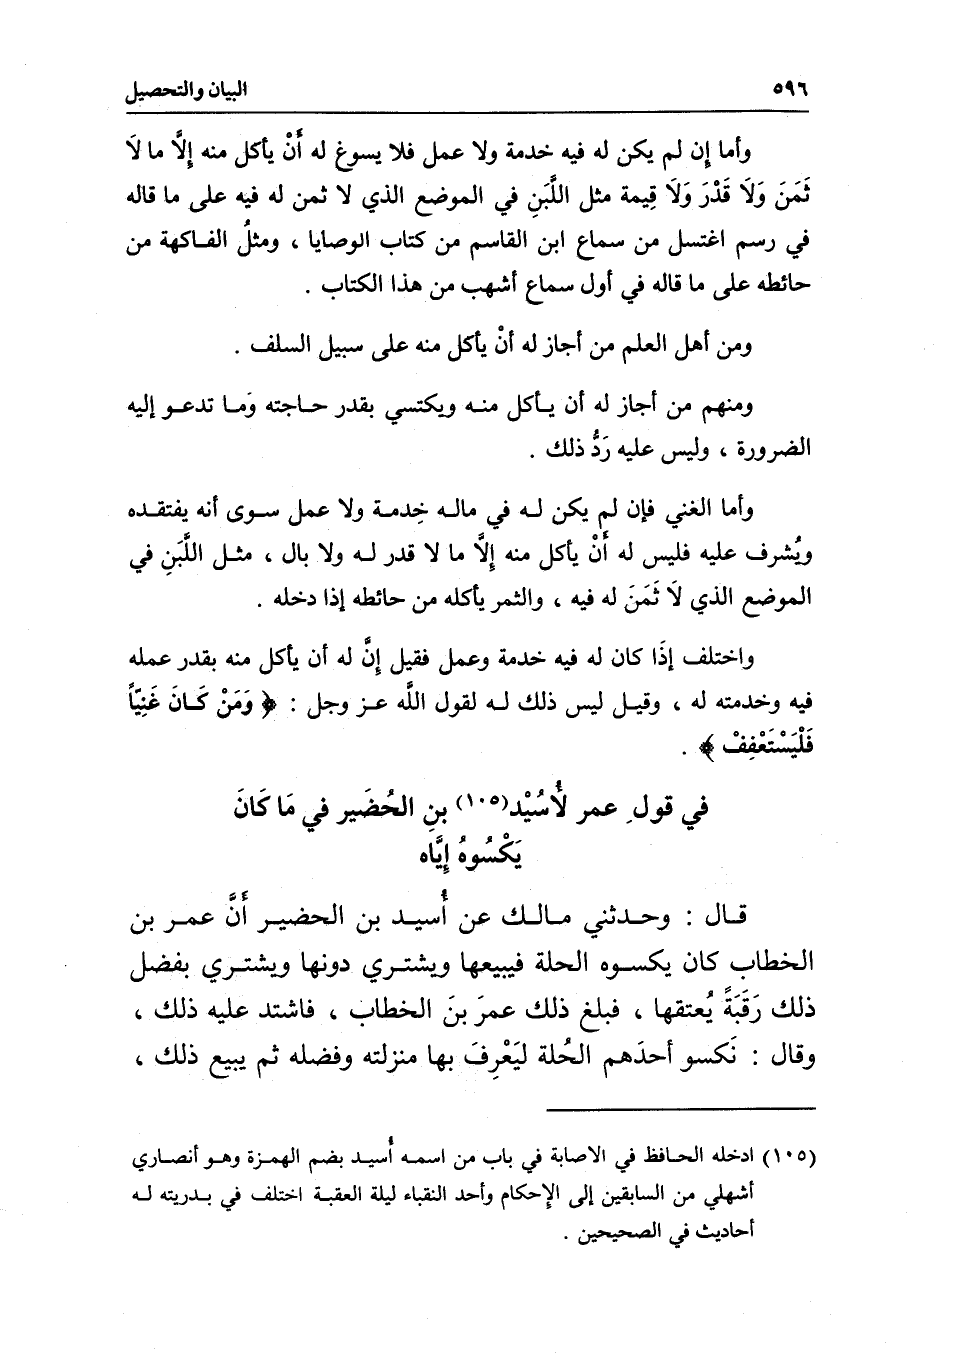 ٥٩٦
البيان والتحصيل
وأما إن لم يكن له فيه خدمة ولا عمل فلا يسوغ له أَنْ يأكل منه إِلَّا ما لَا
ثَمَنَ وَلَا قَدْرَ وَلَا قِيمة مثل اللَّبَنِ في الموضع الذي لا ثمن له فيه على ما قاله
في رسم اغتسل من سماع ابن القاسم من كتاب الوصايا ، ومثلُ الفاكهة من
حائطه على ما قاله في أول سماع أشهب من هذا الكتاب .
ومن أهل العلم من أجاز له أنْ يأكل منه على سبيل السلف .
ومنهم من أجاز له أن يأكل منه ويكتسي بقدر حاجته وَما تدعو إليه
الضرورة ، وليس عليه رَدُّ ذلك .
وأما الغني فإن لم يكن له في ماله خِدمة ولا عمل سوى أنه يفتقده
ويُشرف عليه فليس له أَنْ يأكل منه إِلَّا ما لا قدر له ولا بال ، مثل اللَّبَنِ في
الموضع الذي لَا ثَمَنَ له فيه ، والثمر يأكله من حائطه إذا دخله .
واختلف إِذَا كان له فيه خدمة وعمل فقيل إِنَّ له أن يأكل منه بقدر عمله
فيه وخدمته له ، وقيل ليس ذلك له لقول اللَّه عز وجل : ﴿ وَمَنْ كَانَ غَنِيّاً
فَلْيَسْتَعْفِفْ ﴾ .
في قول عمر لُأسُيْد(١٠٥) بنِ الحُضَير في مَا كَانَ
يَكْسُوهُ إِيَّاه
قال : وحدثني مالك عن أُسيد بن الحضير أَنَّ عمر بن
الخطاب كان يكسوه الحلة فيبيعها ويشتري دونها ويشتري بفضل
ذلك رَقَبَةً يُعتقها ، فبلغ ذلك عمرَ بنَ الخطاب ، فاشتد عليه ذلك ،
وقال : نَكسو أحدَهم الحُلة ليَعْرِفَ بها منزلته وفضله ثم يبيع ذلك ،
(١٠٥) ادخله الحافظ في الاصابة في باب من اسمه أُسيد بضم الهمزة وهو أنصاري
أشهلي من السابقين إلى الإحكام وأحد النقباء ليلة العقبة اختلف في بدريته له
أحاديث في الصحيحين .